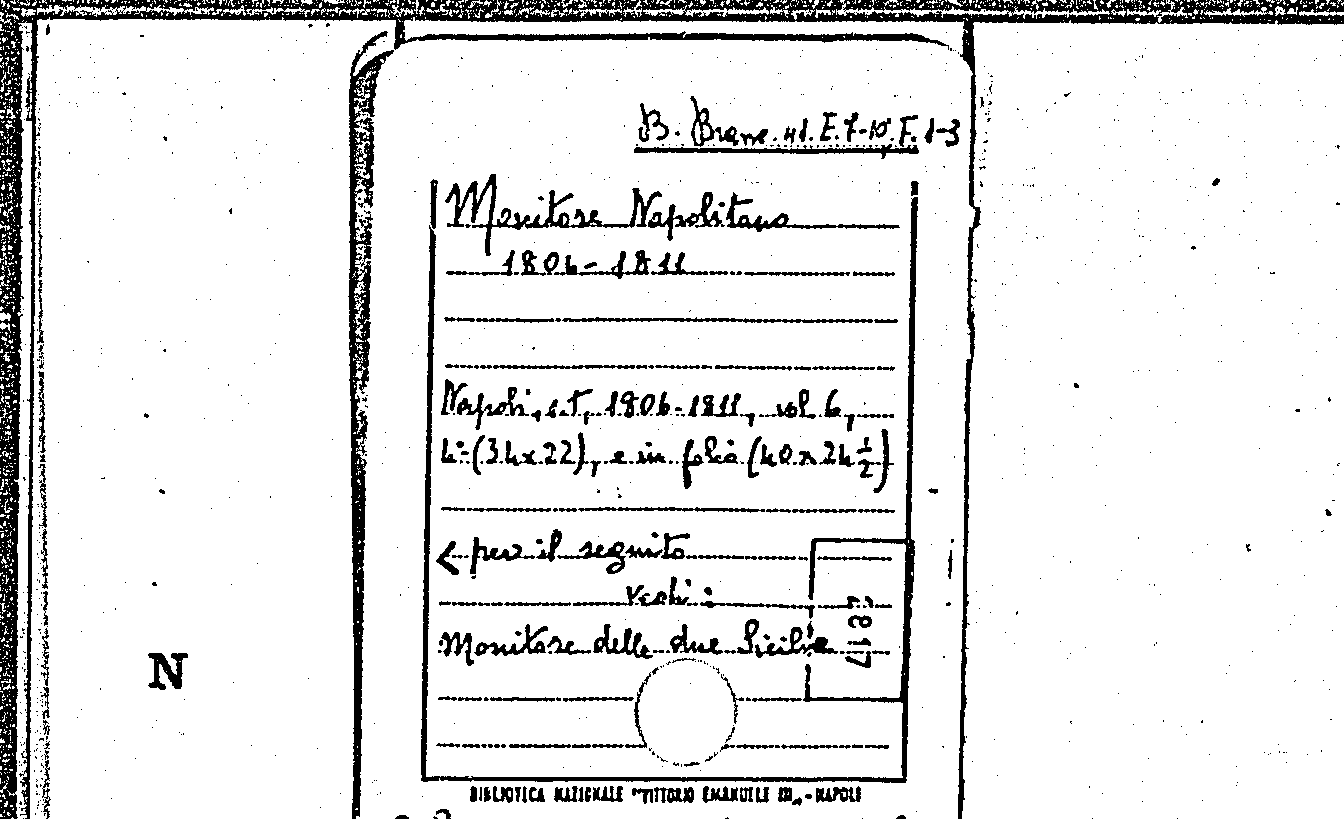 B. Branc. 41. E. 7-10, F. 1-3
Monitore Napolitano
1806-1811
Napoli, s.t., 1806-1811, vol. 6,
4º (34x22), e in folio (40x24½)
< per il seguito
vedi:
Monitore delle due Sicilie
2817
N
BIBLIOTECA NAZIONALE "VITTORIO EMANUELE III" - NAPOLI